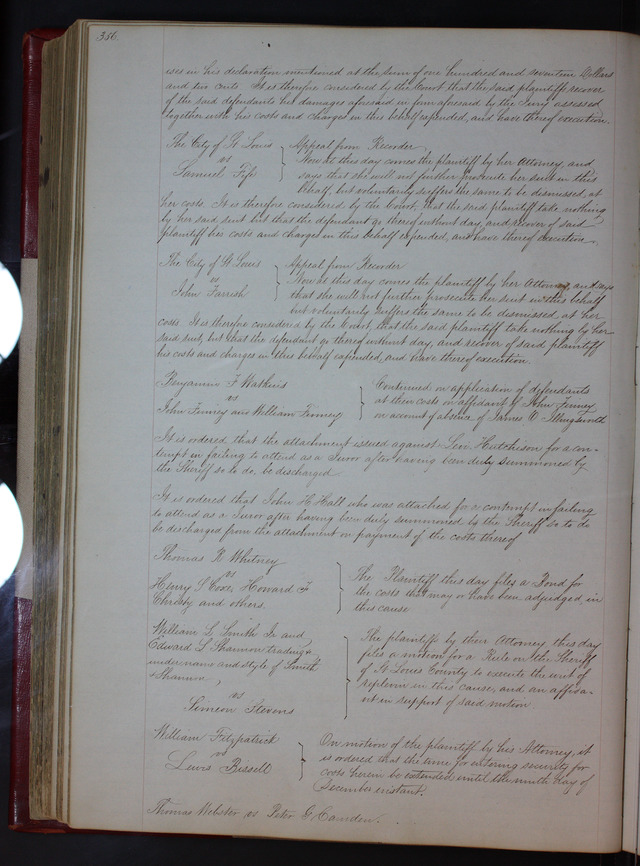 356.
ises in his declaration mentioned at the sum of one hundred and seventeen Dollars
and ten cents. It is therefore considered by the Court that the said plaintiff recover
of the said defendants his damages aforesaid in form aforesaid by the Jury assessed
together with his costs and charges in this behalf expended, and have thereof execution.
The City of St Louis
vs
Samuel
Appeal from Recorder
Now at this day comes the plaintiff by her Attorney, and
says that she will not further prosecute her suit in this
behalf, but voluntarily suffers the same to be dismissed, at
her costs. It is therefore considered by the Court, that the said plaintiff take nothing
by her said suit but that the defendant go thereof without day, and recover of said
plaintiff his costs and charges in this behalf expended, and have thereof execution.
The City of St Louis
vs
John Farrish
Appeal from Recorder
Now at this day comes the plaintiff by her Attorney, and says
that she will not further prosecute her suit in this behalf
but voluntarily suffers the same to be dismissed, at her
costs. It is therefore considered by the Court, that the said plaintiff take nothing by her
said suit, but that the defendant go thereof without day, and recover of said plaintiff
his costs and charges in this behalf expended, and have thereof execution.
Benjamin F Watkins
vs
John Finney and William Finney
Continued on application of defendants
at their costs on affidavit of John Finney
on account of absence of James O Illingsworth
It is ordered that the attachment issued against Levi Hutchison for a con-
tempt in failing to attend as a Juror after having been duly summoned by
the Sheriff so to do, be discharged
It is ordered that John H Hall who was attached for a contempt in failing
to attend as a Juror after having been duly summoned by the Sheriff so to do
be discharged from the attachment on payment of the costs thereof
Thomas R Whitney
vs
Henry S Coxe, Howard F
Christy and others
The Plaintiff this day files a Bond for
the costs that may or have been adjudged, in
this cause
William L Smith Jr and
Edward L Shannon trading
under name and style of Smith
& Shannon,
vs
Simeon Stevens
The plaintiffs by their Attorney this day
files a motion for a Rule on the Sheriff
of St Louis County to execute the writ of
replevin in this cause, and an affida-
vit in support of said motion
William Fitzpatrick
vs
Lewis Bissell
On motion of the plaintiff by his Attorney, it
is ordered that the time for entering security for
costs herein be extended until the ninth day of
December instant.
Thomas Webster vs Peter G Camden.